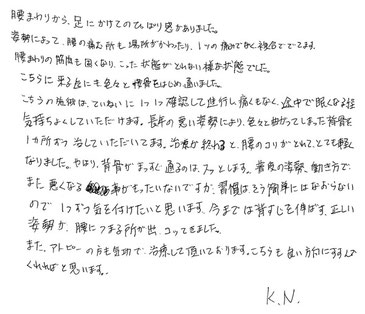 腰まわりから、足にかけてのでっぱり感がありました。
姿勢によって、腰の痛む所も場所がかわったり、1つの痛みでなく複合ででてます。
腰まわりの筋肉も固くなり、こった状態がとれない様な状態でした。
こちらに来る前にも色々と接骨をはじめ通いました。
こちらの施術は、ていねいに1つ1つ確認して進行し痛くもなく、途中で眠くなる程
気持ちよくしていただけます。長年の悪い姿勢により、色々と曲がってしまった背骨を
1ヵ所ずつ治していただいてます。治療が終わると、腰のコリがとれて、とても軽く
なりました。やはり、背骨がまっすぐ通るのは、スッとします。普段の姿勢、動き方で、
また悪くなる事がもったいないですが、習慣はそう簡単にはなおらない
ので1つずつ気を付けたいと思います。今までは背すじを伸ばす、正しい
姿勢が、腰につまる所が出、コッてきました。
また、アトピーの方も気功で、治療して頂いております。こちらも良い方向にすすんで
くれればと思います。
K.N.